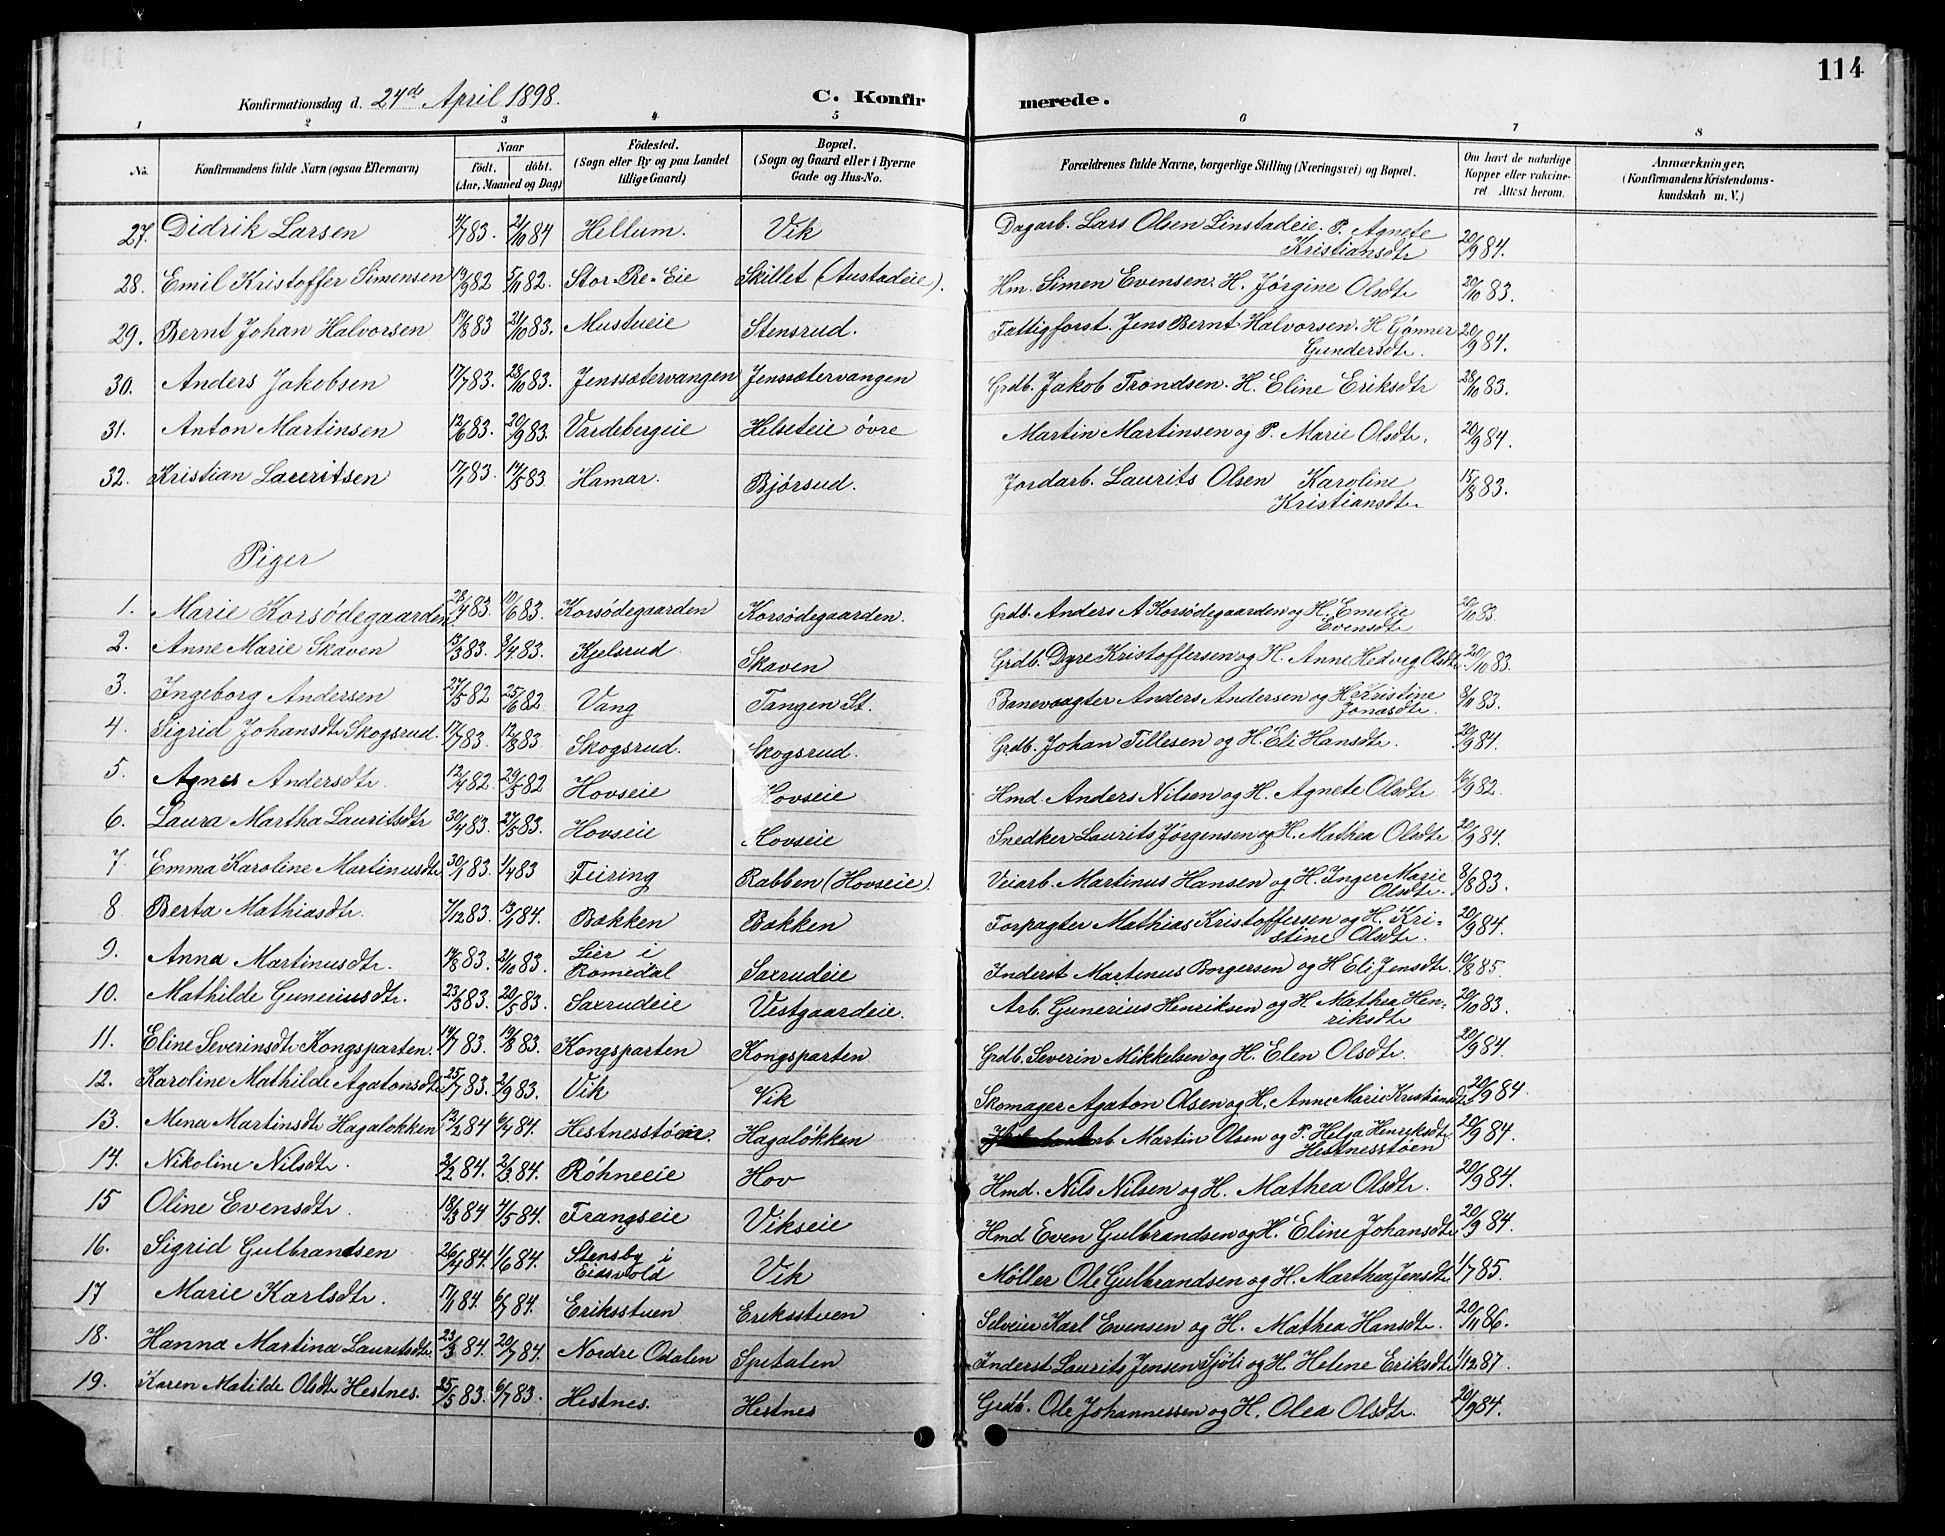 114
Konfirmationsdag d. 24de April 1898. C. Konfirmerede.
1 2 3 4 5 6 7 8
No. Konfirmandens fulde Navn (ogsaa Efternavn) Naar født. døbt. (Aar, Maaned og Dag) Fødested. (Sogn eller By og paa Landet tillige Gaard) Bopæl. (Sogn og Gaard eller i Byerne Gade og Hus-No. Forældrenes fulde Navne, borgerlige Stilling (Næringsvei) og Bopæl. Om havt de naturlige Kopper eller vakcineret. Attest herom. Anmærkninger. (Konfirmandens Kristendomskundskab m. V.)
27. Didrik Larsen 4/7 83. 21/10 84 Hellum. Vik Dagarb. Lars Olsen Linstadeie. P. Agnete Kristiansdtr 20/9 84.
28. Emil Kristoffer Simensen 19/9 82 5/11 82. Stor-Re-Eie Skillet (Austadeie). Hm. Simen Evensen. H. Jørgine Olsdtr 20/10 83.
29. Bernt Johan Halvorsen 19/8 83 21/10 83. Mustueie Stensrud. Fattigforst. Jens Bernt Halvorsen. H Gønner Gundersdtr. 20/9 84.
30. Anders Jakobsen 17/7 83. 28/10 83. Jenssætervangen Jenssætervangen Grdb. Jakob Trondsen. H. Eline Eriksdtr 28/10 83.
31. Anton Martinsen 12/6 83. 20/9 83. Vardebergeie Helseteie øvre Martin Martinsen og P. Marie Olsdtr. 20/9 84.
32. Kristian Lauritsen 17/1 83. 14/5 83. Hamar. Bjørsud. Jordarb. Laurits Olsen Karoline Kristiansdtr 15/8 83.
Piger
1. Marie Korsødegaarden 28/4 83. 10/6 83. Korsødegaarden Korsødegaarden. Grdb. Anders A Korsødegaarden og H. Emelie Evensdtr 20/10 83.
2. Anne Marie Skaven 13/3 83. 8/4 83. Kjelsrud Skaven Grdb. Dyre Kristoffersen og H. Anne Hedvig Olsdtr. 20/10 83.
3. Ingeborg Andersen 27/5 82 25/6 82. Vang Tangen St. Banevogter Anders Andersen og H Kristine Jonasdtr. 8/11 83.
4. Sigrid Johansdtr Skogsrud. 17/7 83. 12/8 83 Skogsrud. Skogsrud. Grdb. Johan Tillesen og H. Eli Hansdtr. 20/9 84.
5. Agnes Andersdtr. 12/4 82. 29/5 82 Hovseie Hovseie Hmd. Anders Nilsen og H. Agnete Olsdtr 16/9 82.
6. Laura Martha Lauritsdtr 30/4 83. 27/5 83. Hovseie Hovseie Snedker Laurits Jørgensen og H. Mathea Olsdtr 20/9 84.
7 Emma Karoline Martinusdtr 30/1 83. 1/4 83 Feiring Rabben (Hovseie). Veiarb. Martinus Hansen og H. Inger Marie Olsdtr. 8/8 83.
8 Berta Mathiasdtr. 7/12 83. 13/1 84. Bakken Bakken Forpagter Mathias Kristoffersen og H. Kristine Olsdtr. 20/9 84.
9. Anna Martinusdtr. 14/8 83. 21/10 83. Lier i Romedal Saxrudeie Inderst Martinus Borgersen og H Eli Jensdtr 10/8 85.
10. Mathilde Guneriusdtr. 23/3 83. 20/5 83. Saxrudeie Vestgaardeie. Arb. Gunerius Henriksen og H. Mathea Henriksdtr 20/10 83.
11. Eline Severinsdtr Kongsparten. 14/7 83. 19/8 83. Kongsparten Kongsparten Grdb. Severin Mikkelsen og H. Elen Olsdtr. 20/9 84.
12. Karoline Mathilde Agatonsdtr 25/7 83. 2/9 83. Vik Vik Skomager Agaton Olsen og H. Anne Marie Kristiansdtr 20/9 84.
13. Mena Martinsdtr Hagaløkken 12/2 84 6/4 84. Hestnesstøen. Hagaløkken Arb. Martin Olsen og P. Helga Henriksdtr Hestnesstøen 20/9 84.
14. Nikoline Nilsdtr. 2/2 84. 2/3 84. Røhneeie Hov Hmd. Nils Nilsen og H. Mathea Olsdtr. 20/9 84.
15 Oline Evensdtr. 18/3 84 4/5 84. Frangseie Vikseie Hmd Even Gulbrandsen og H. Eline Johansdtr 20/9 84.
16. Sigrid Gulbrandsen 26/4 84. 1/6 84. Stensby i Eidsvold Vik Møller Ole Gulbrandsen og H. Marthea Jensdtr 1/7 85.
17 Marie Karlsdtr. 17/1 84. 6/7 84. Eriksstuen Eriksstuen Selveier Karl Evensen og H. Mathea Hansdtr. 20/11 86.
18. Hanna Martina Lauritsdtr. 23/3 84. 20/7 84. Nordre Odalen Spetalen Inderst Laurits Jensen Sjøli og H. Helene Eriksdtr 1/12 87.
19. Karen Matilde Olsdtr Hestnes. 25/5 83. 6/7 83. Hestnes. Hestnes Grdb. Ole Johannessen og H. Olea Olsdtr. 20/9 84.